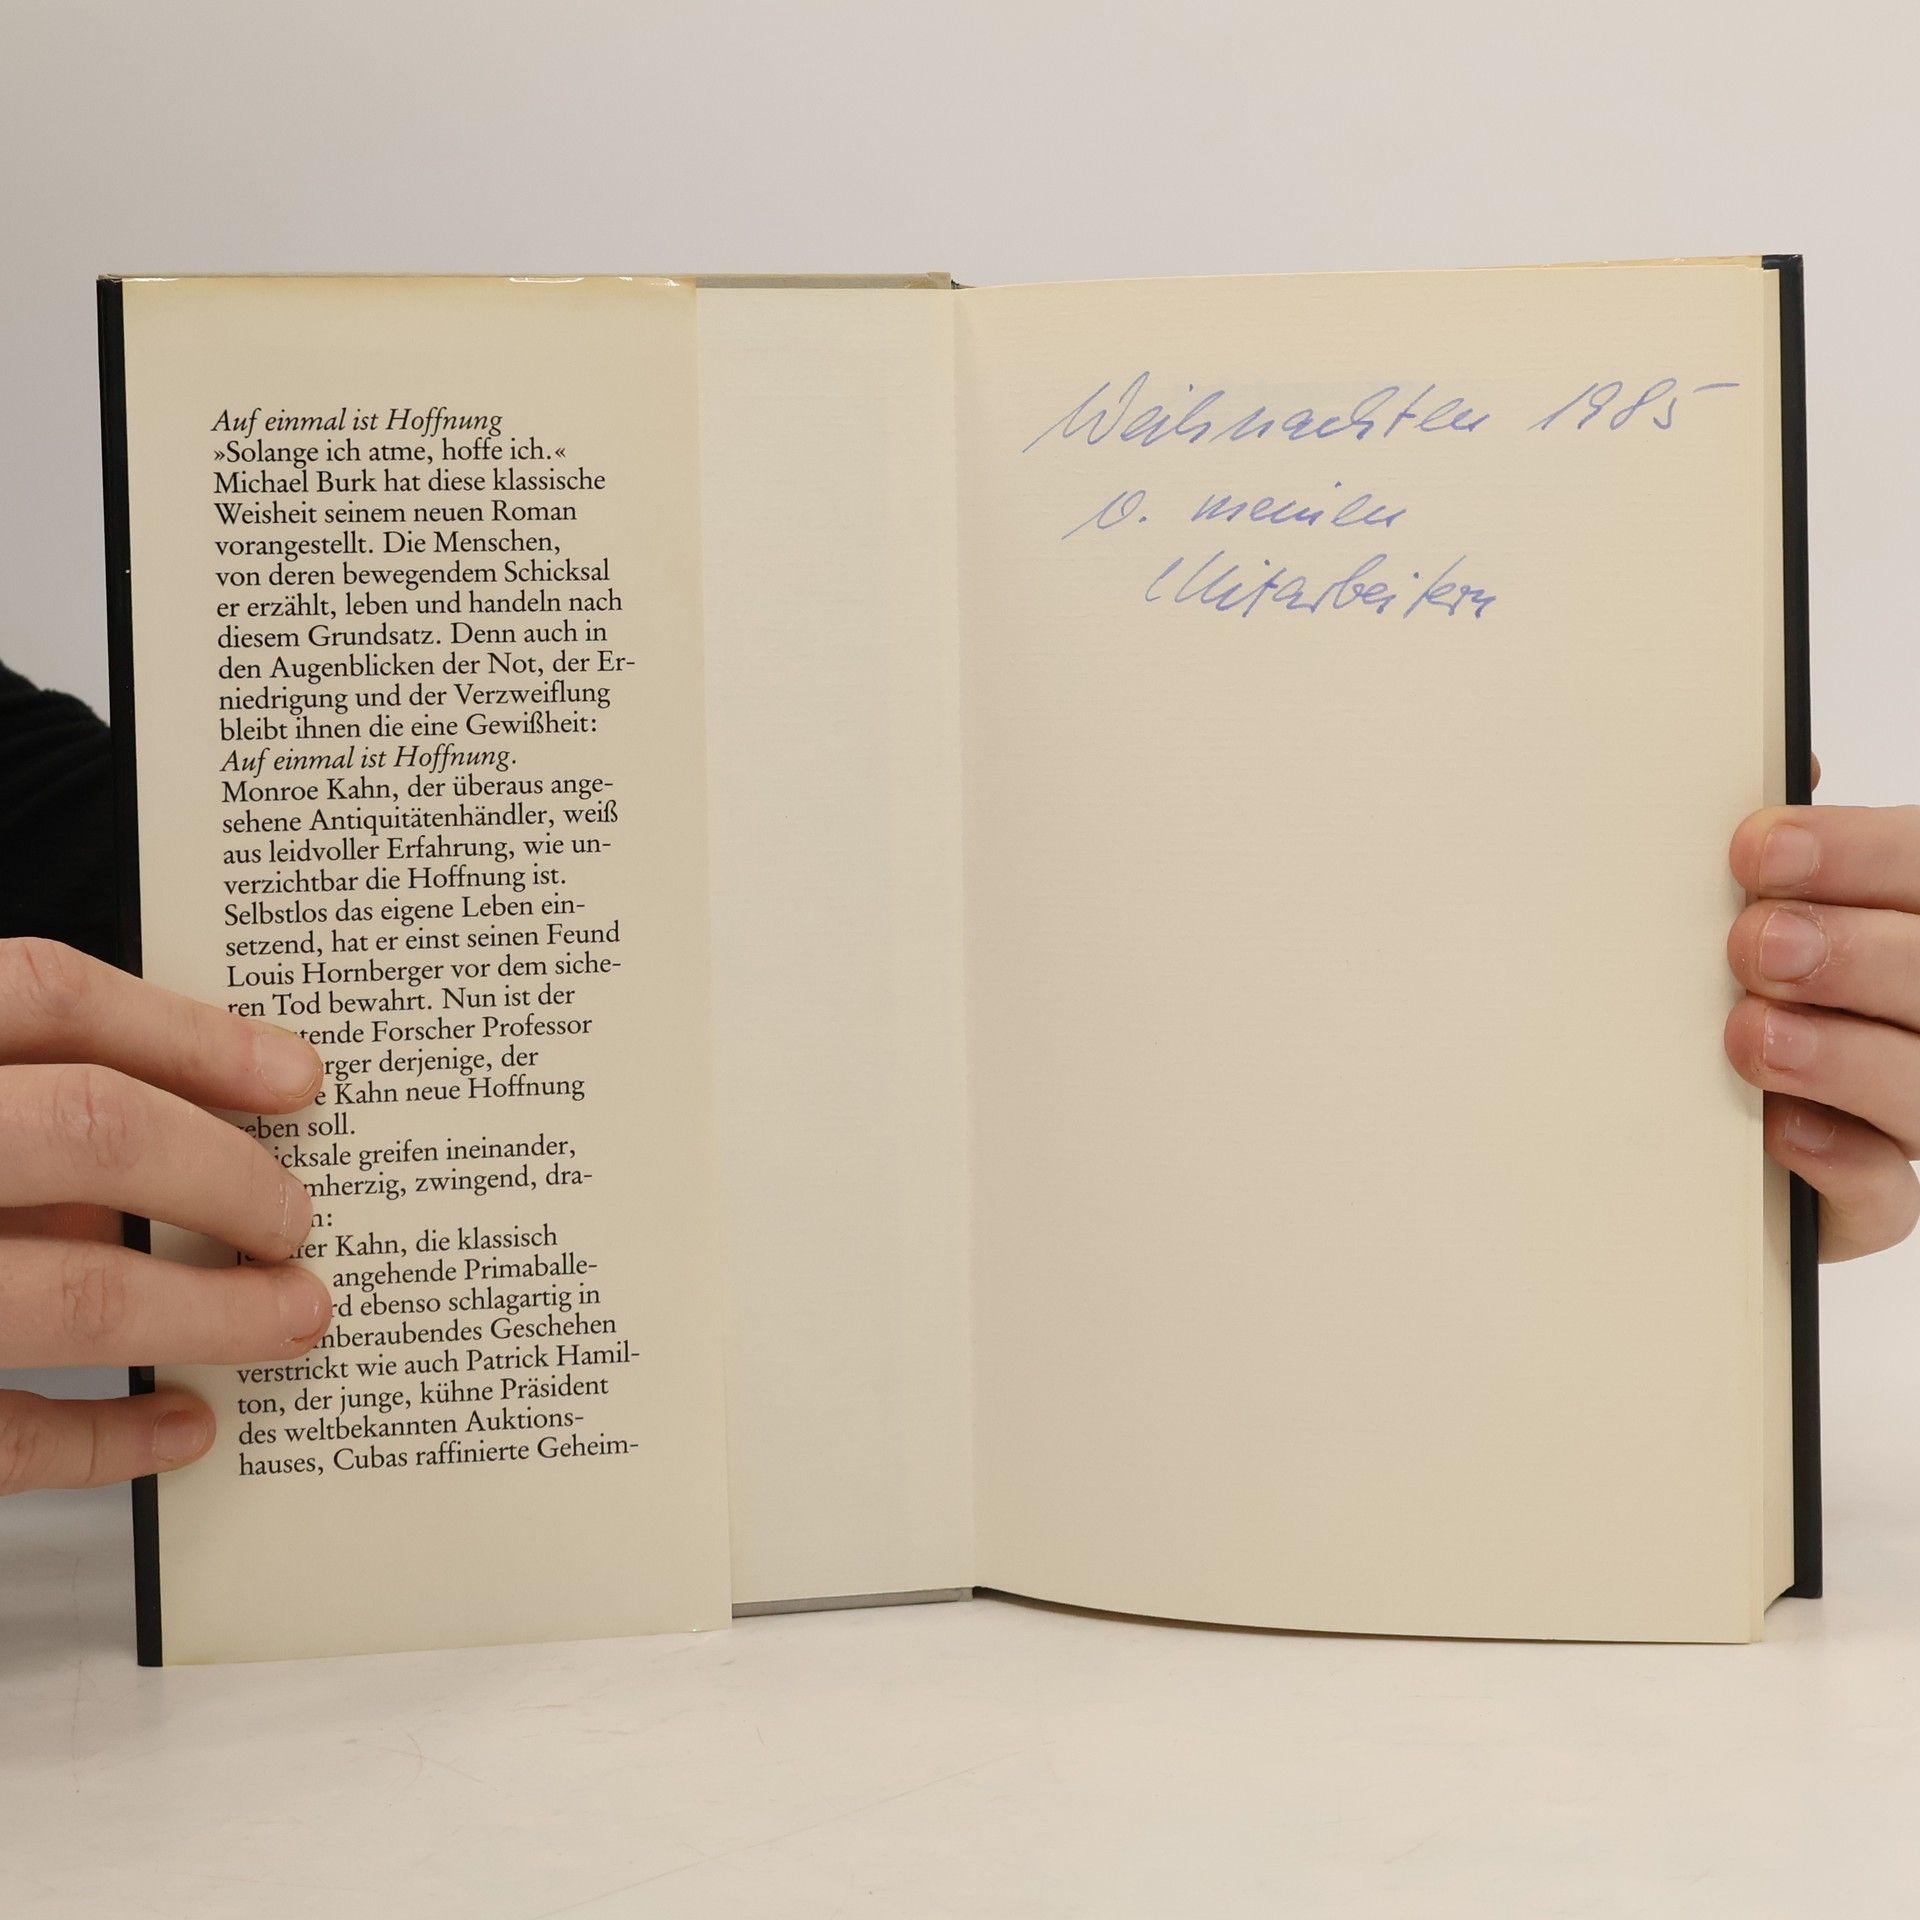 Auf einmal ist Hoffnung
»Solange ich atme, hoffe ich.«
Michael Burk hat diese klassische
Weisheit seinem neuen Roman
vorangestellt. Die Menschen,
von deren bewegendem Schicksal
er erzählt, leben und handeln nach
diesem Grundsatz. Denn auch in
den Augenblicken der Not, der Er-
niedrigung und der Verzweiflung
bleibt ihnen die eine Gewißheit:
Auf einmal ist Hoffnung.
Monroe Kahn, der überaus ange-
sehene Antiquitätenhändler, weiß
aus leidvoller Erfahrung, wie un-
verzichtbar die Hoffnung ist.
Selbstlos das eigene Leben ein-
setzend, hat er einst seinen Feund
Louis Hornberger vor dem siche-
ren Tod bewahrt. Nun ist der
Forscher Professor
derjenige, der
Kahn neue Hoffnung
soll.
greifen ineinander,
zwingend, dra-
Kahn, die klassisch
angehende Primaballe-
ebenso schlagartig in
Geschehen
verstrickt wie auch Patrick Hamil-
ton, der junge, kühne Präsident
des weltbekannten Auktions-
hauses, Cubas raffinierte Geheim-
Weihnachten 1985
v. meinen
Mitarbeitern